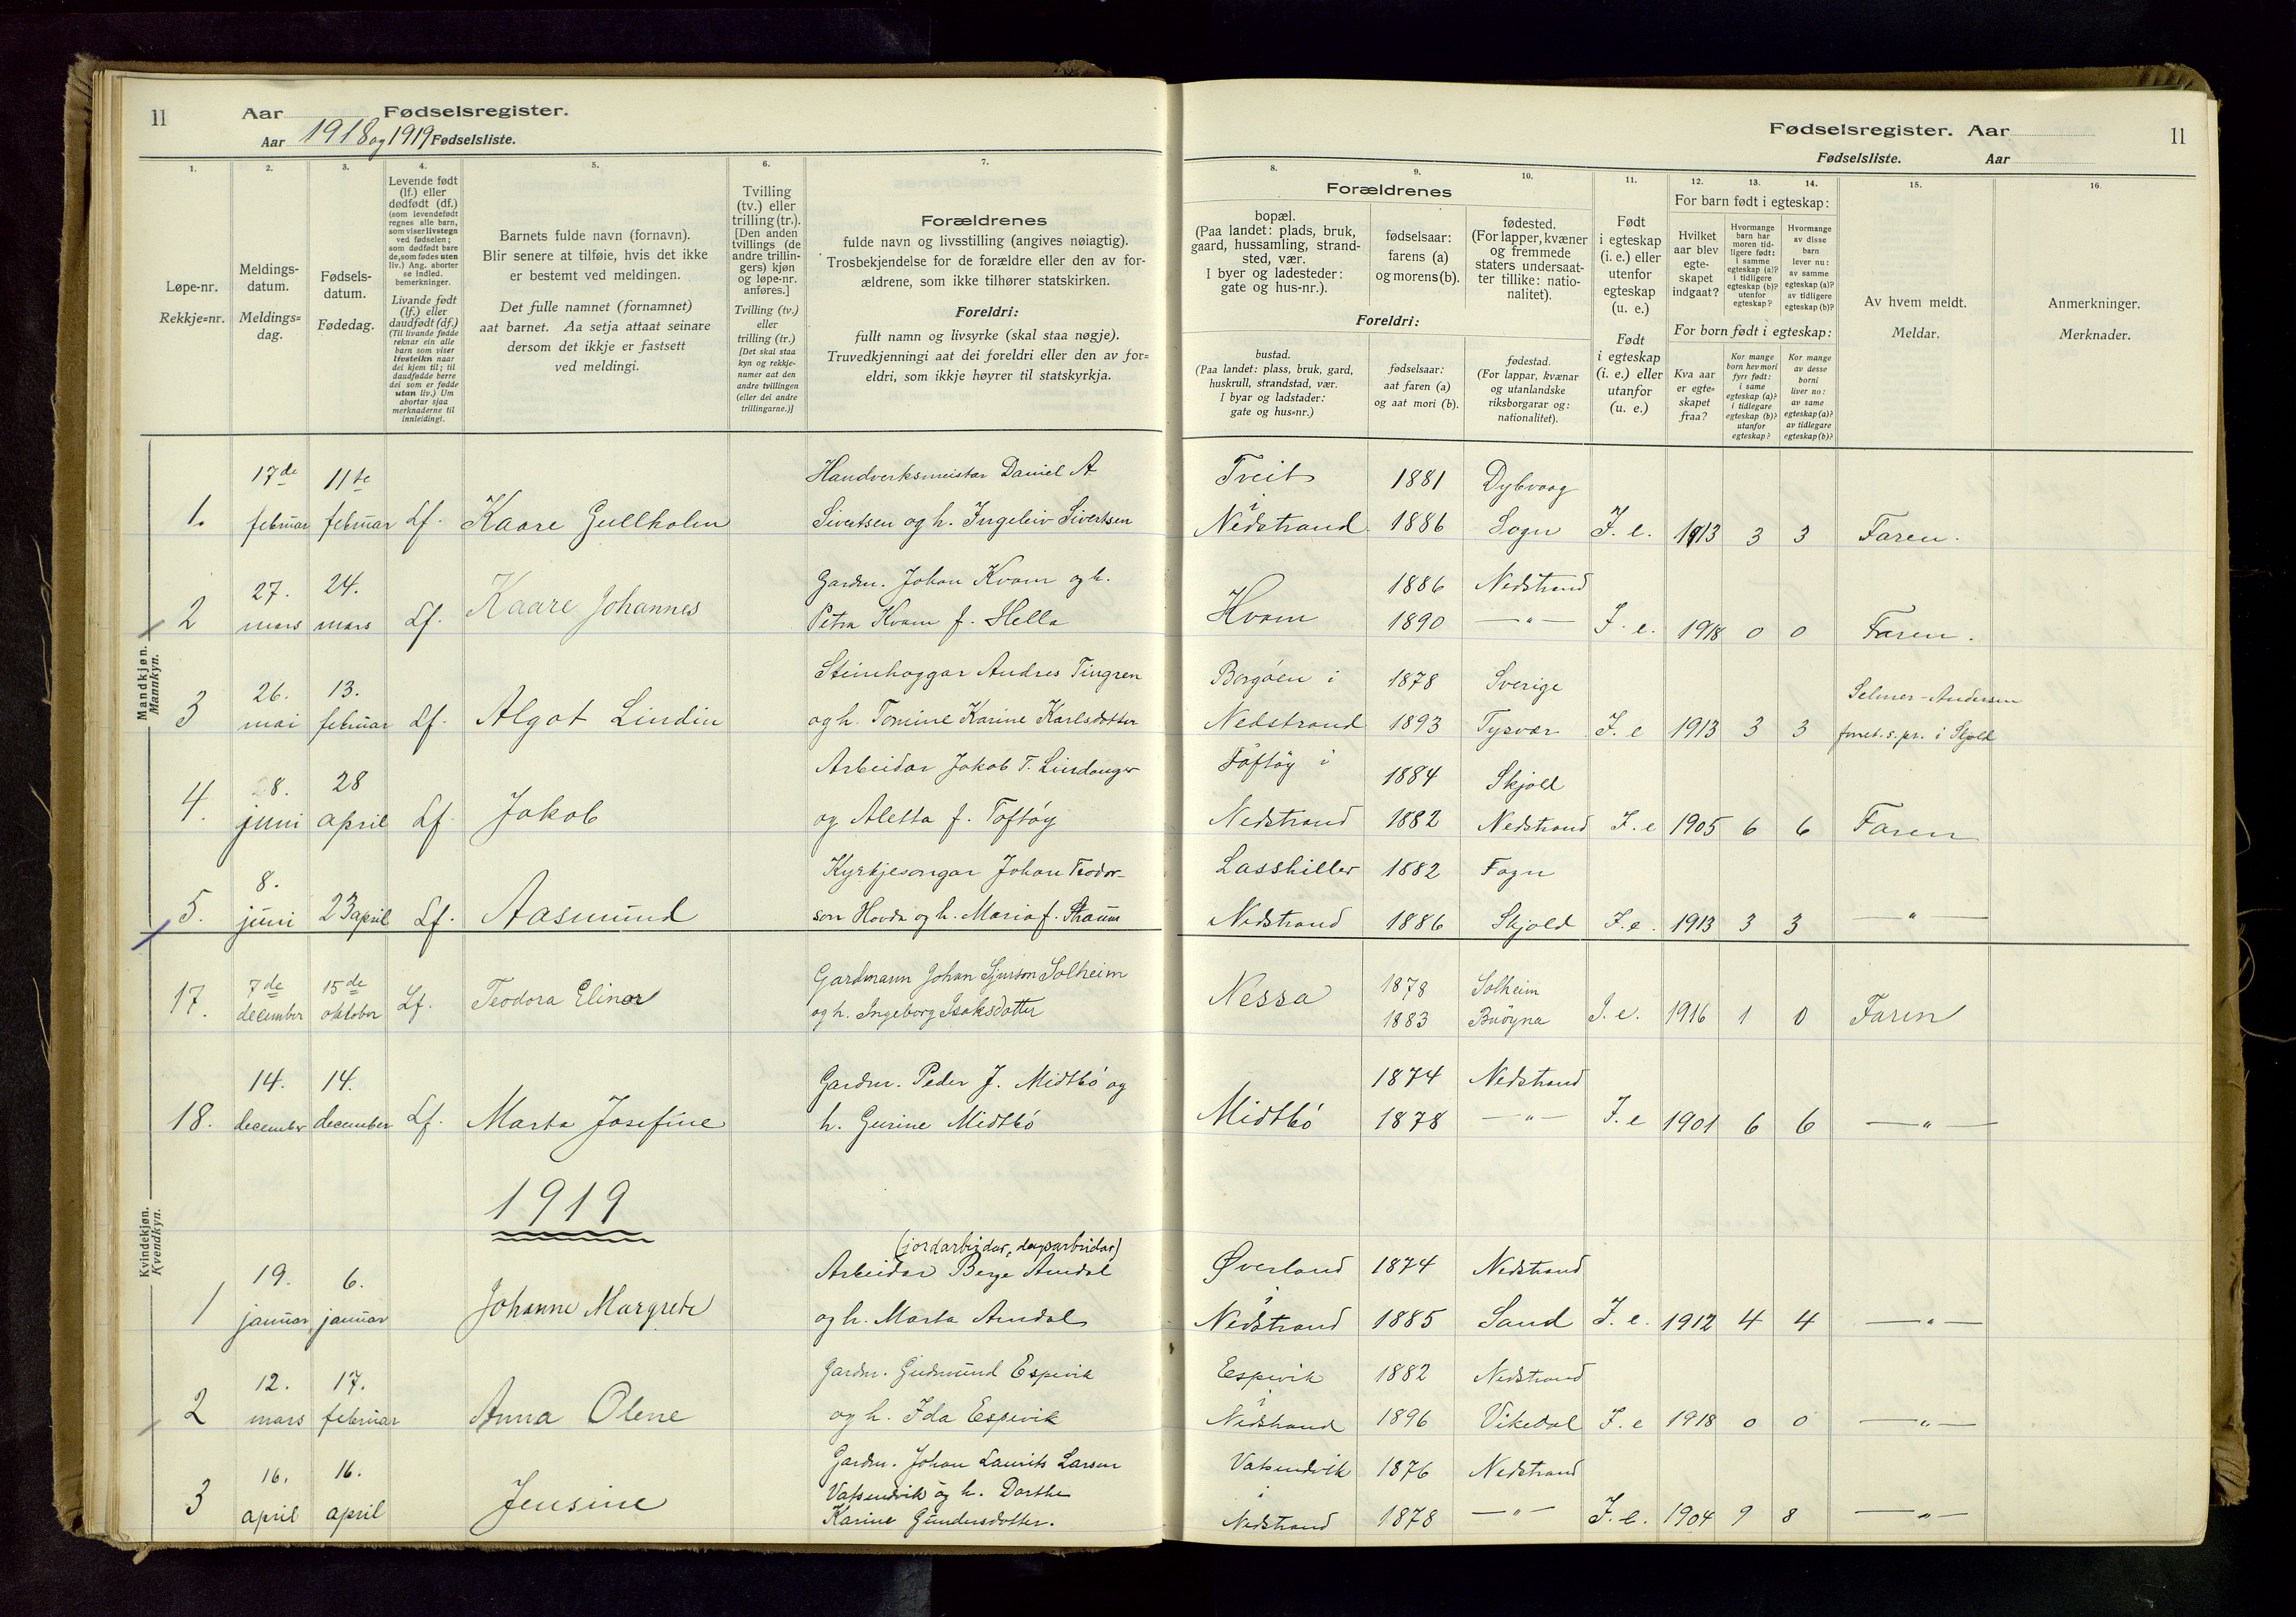 11
Aar Fødselsregister.
Aar 1918 og 1919 Fødselsliste.
Fødselsregister. Aar
11
Fødselsliste. Aar
1.
2.
3.
4.
5.
6.
7.
8.
9.
10.
11.
12.
13.
14.
15.
16.
Løpe-nr.
Rekkje=nr.
Meldings-
datum.
Meldings=
dag.
Fødsels-
datum.
Fødedag.
Levende født
(lf.) eller
dødfødt (df.)
(som levendefødt
regnes alle barn,
som viser livstegn
ved fødselen;
som dødfødt bare
de, som fødes uten
liv.) Ang. aborter
se indled.
bemerkninger.
Livande født
(lf.) eller
daudfødt (df.)
(Til livande fødde
reknar ein alle
barn som viser
livsteikn naar
dei kjem til; til
daudfødde berre
dei som er fødde
utan liv.) Um
abortar sjaa
merknaderne til
innleidingi.
Barnets fulde navn (fornavn).
Blir senere at tilføie, hvis det ikke
er bestemt ved meldingen.
Det fulle namnet (fornamnet)
aat barnet. Aa setja attaat seinare
dersom det ikkje er fastsett
ved meldingi.
Tvilling
(tv.) eller
trilling (tr.).
[Den anden
tvillings (de
andre trillin-
gers) kjøn
og løpe-nr.
anføres.]
Tvilling (tv.)
eller
trilling (tr.)
[Det skal staa
kyn og rekkje-
numer aat den
andre tvillingen
(eller dei andre
trillingarne.)]
Forældrenes
fulde navn og livsstilling (angives nøiagtig).
Trosbekjendelse for de forældre eller den av for-
ældrene, som ikke tilhører statskirken.
Foreldri:
fullt namn og livsyrke (skal staa nøgje).
Truvedkjenningi aat dei foreldri eller den av for=
eldri, som ikkje høyrer til statskyrkja.
Forældrenes
bopæl.
(Paa landet: plads, bruk,
gaard, hussamling, strand-
sted, vær.
I byer og ladesteder:
gate og hus-nr.).
fødselsaar:
farens (a)
og morens (b).
fødested.
(For lapper, kvæner
og fremmede
staters undersaat-
ter tillike: natio-
nalitet).
Foreldri:
bustad.
(Paa landet: plass, bruk, gard,
huskrull, strandstad, vær.
I byar og ladstader:
gate og hus=nr.)
fødselsaar:
aat faren (a)
og aat mori (b).
fødestad.
(For lappar, kvænar
og utanlandske
riksborgarar og:
nationalitet).
Født
i egteskap
(i. e.) eller
utenfor
egteskap
(u. e.)
Født
i egteskap
(i. e.) eller
utanfor
(u. e.)
For barn født i egteskap:
Hvilket
aar blev
egte-
skapet
indgaat?
Hvormange
barn har
moren tid-
ligere født:
i samme
egteskap (a)?
i tidligere
egteskap (b)?
utenfor
egteskap?
Hvormange
av disse
barn
lever nu:
av samme
egteskap (a)?
av tidligere
egteskap (b)?
For born født i egteskap:
Kva aar
er egte=
skapet
fraa?
Kor mange
born hev mori
fyrr født:
i same
egteskap (a)?
i tidlegare
egteskap (b)?
utanfor
egteskap?
Kor mange
av desse
borni
liver no:
av same
egteskap (a)?
av tidlegare
egteskap (b)?
Av hvem meldt.
Meldar.
Anmerkninger.
Merknader.
Mandkjøn.
Mannkyn.
17de 11te Handverksmeistar Daniel A Tveit 1881 Dybvaag
1. februar februar Lf. Kaare Gullholm Sivertsen og h. Ingeleiv Sivertsen i Nedstrand 1886 Sogn I. e. 1913 3 3 Faren.
27. 24. Gardm. Johan Kvam og h. 1886 Nedstrand
2 mars mars Lf. Kaare Johannes Petra Kvam f. Hella Hvam 1890 —"— I. e. 1918 0 0 Faren.
26. 13. Steinhoggar Andres Tingren Borgøen i 1878 Sverige Selmer-Andersen
3 mai februar Lf. Algot Lindin og h. Tomine Karine Karlsdotter Nedstrand 1893 Tysvær I. e 1913 3 3 i Skjold
8. 28 Arbeidar Jakob T. Lindanger Toftøy i 1884 Skjold
4. juni april Lf. Jakob og Aletta f. Toftøy Nedstrand 1882 Nedstrand I. e 1905 6 6 Faren
8. Kyrkjesongar Johan Teodor- 1882 Fogn
5. juni 23 april Lf. Aasmund son Hovda og h. Maria f. Straum Nedstrand 1886 Skjold I. e. 1913 3 3 —"—
Kvindekjøn.
Kvendkyn.
7de 15de Gardmann Johan Sjurson Solheim 1878 Solheim
17. december oktober Lf. Teodora Elinor og h. Ingeborg Isaksdotter Nessa 1883 I. e. 1916 1 0 Faren
14. 14. Gardm. Peder J. Midtbö og 1874 Nedstrand
18. december december Lf. Marta Josefine h. Gurine Midtbö Midtbö 1878 —"— I. e 1901 6 6 —"—
1919
(jordarbeidar, dagsarbeidar)
19. 6. Arbeidar Berge Amdal Øverland 1874 Nedstrand
1 januar januar Johanne Margrete og h. Marta Amdal i Nedstrand 1885 Sand I. e. 1912 4 4 —"—
12. 17. Gardm. Gudmund Espevik Espevik 1882 Nedstrand
2 mars februar Anna Olene og h. Ida Espevik i Nedstrand 1896 Vikedal I. e 1918 0 0 —"—
16. 16. Gardm. Johan Laurits Larsen Vatsendvik 1876 Nedstrand
3 april april Jensine Vatsendvik og h. Dorthe i
Karine Gundersdotter. Nedstrand 1878 —"— I. e. 1904 9 8 —"—